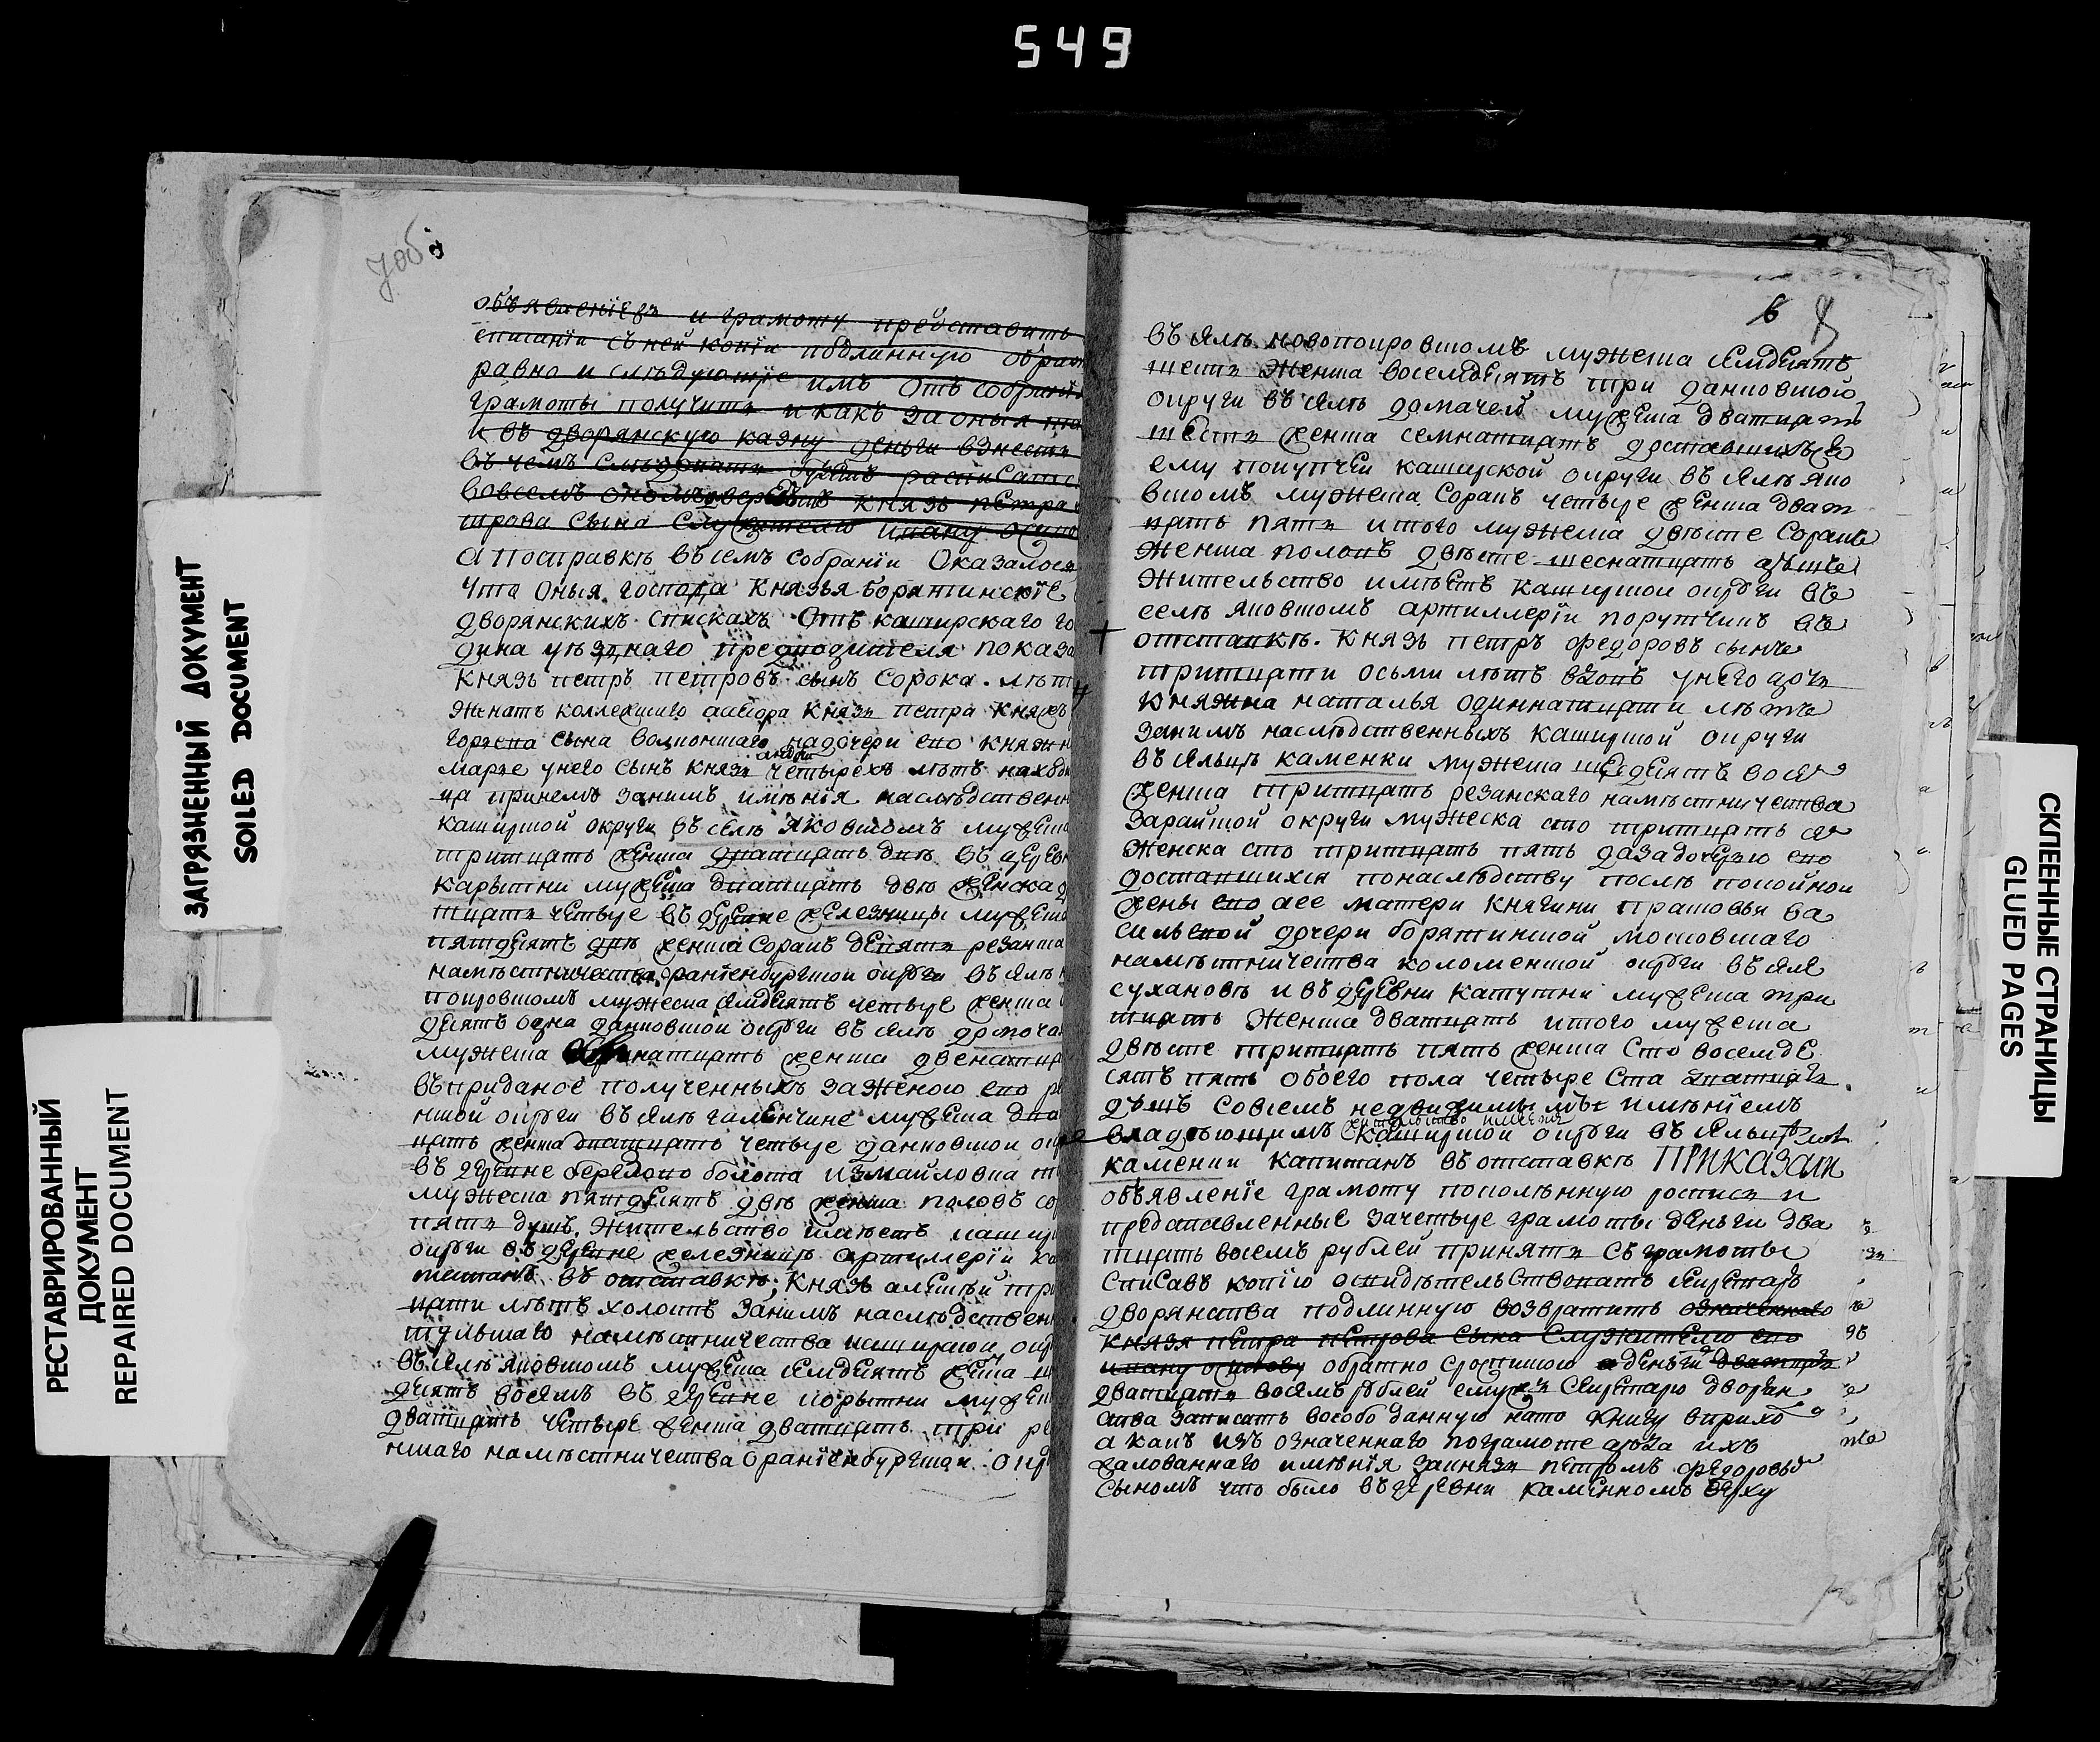 549
ЗАГРЯЗНЕННЫЙ ДОКУМЕНТ
SOILED DOCUMENT
РЕСТАВРИРОВАННЫЙ
ДОКУМЕНТ
REPAIRED DOCUMENT
7об
объявлениемъ и грамоту представить
списаніи съ ней копіи подлинную обрат
равно и следующіе имъ отъ собраній
грамоты получить и какъ за оныя
и въ дворянскую казну деньги внесть
въ чемъ следовать будетъ расписатся
вовсемъ ономъ князь петра
трова сына служителю ивану осипо
а посправкѣ въ семъ собраніи оказалося
что оныя господа князья борятинскіе
дворянскихъ спискахъ отъ каширскаго го
дина уѣзднаго предводителя показа
князь петръ петровъ сынъ сорока лѣтъ
женатъ коллежскаго асесора князь петра княжъ
сына волконскаго на дочери ево княжн
марье унего сынъ князь андрей четырехъ лѣтъ находи
ца принемъ занимъ имѣнія наследственн
каширской округи въ селѣ яковскомъ мужеска
тритцать женска дватцать две въ деревн
карытни мужеска дватцать две женска д
тцать четыре въ деревне железницы мужеска
пятдесятъ две женска сорокъ девять резанска
намѣстничества раніенбургской округи въ селѣ
покровскомъ мужеска семдесятъ четыре женска
десятъ одна данковской округи въ селѣ домоча
мужеска натцать женска двенатца
въ приданое полученныхъ за женою ево ре
нской округи въ селѣ галенчине мужеска два
цать женска дватцать четыре данковской окру
въ деревне березово болота измайловка т
мужеска пятдесятъ двѣ женска половъ со
пять душъ. жительство имѣетъ кашир
округи въ деревне железницѣ артиллеріи ка
питанъ въ отставкѣ; князь алексѣй три
цати лѣтъ холостъ занимъ наследствен
тульскаго намѣстничества каширской окр
въ селѣ яковскомъ мужеска семдесятъ женска
десятъ восемъ въ деревне корытни мужеск
дватцать четыре женска дватцать три ре
нскаго намѣстничества ораніенбургской окр
6 8
въ селѣ новопокровскомъ мужеска семдесятъ
шесть женска восемдесятъ три данковской
округи въ селѣ домачей мужеска дватцать
шесть женска семнатцать доставшихъся
ему покупкеи каширской округи въ селѣ яко
вскомъ мужеска сорокъ четыре женска дват
цать пять итого мужеска двѣсте сорокъ
женска половъ двѣсте шеснатцать душъ
жительство имѣетъ каширской округи въ
селѣ яковскомъ артиллеріи порутчикъ въ
отставкѣ. князь петръ федоровъ сынъ
тритцати осьми лѣтъ вдовъ унего дочь
княжна наталья одиннатцати лѣтъ
занимъ наследственныхъ каширской округи
въ сельцѣ каменки мужеска шездесятъ восемъ
женска тритцать резанскаго намѣстничества
зарайской округи мужеска сто тритцать
женска сто тритцать пять даза дочерью ево
доставшихся понаследству послѣ покойной
жены ево аее матери княгини прасковьи ва
сильевой дочери борятинской московскаго
намѣстничества коломенской округи въ селе
сухановѣ и въ деревни катутни мужеска три
тцать женска дватцать итого мужеска
двѣсте тритцать пять женска сто восемде
сятъ пять обоего пола четыре ста дватцать
душъ совсемъ недвижимымъ имѣніемъ
владѣющимъ жительство имѣетъ каширской округи въ сельцѣ
каменки капитанъ въ отставкѣ ПРИКАЗАЛИ
объявленіе грамоту поколѣнную роспись и
представленные зачетыре грамоты деньги два
тцать восемъ рублей принять съ грамоты
списавъ копію освидѣтельствовать секретарю
дворянства подлинную возвратить означеннаго
князя петра петрова сына служителю ево
ивану осипову обратно сроспискою а деньги дватцать
дватцать восемъ рублей ему секретарю дворян
ства записать вособо данную нато книгу вприхо
а какъ изъ означеннаго пограмоте деда ихъ
жалованнаго имѣнія закнязь петромъ федоровы
сыномъ что было въ деревни каменномъ верху
СКЛЕЕННЫЕ СТРАНИЦЫ
GLUED PAGES